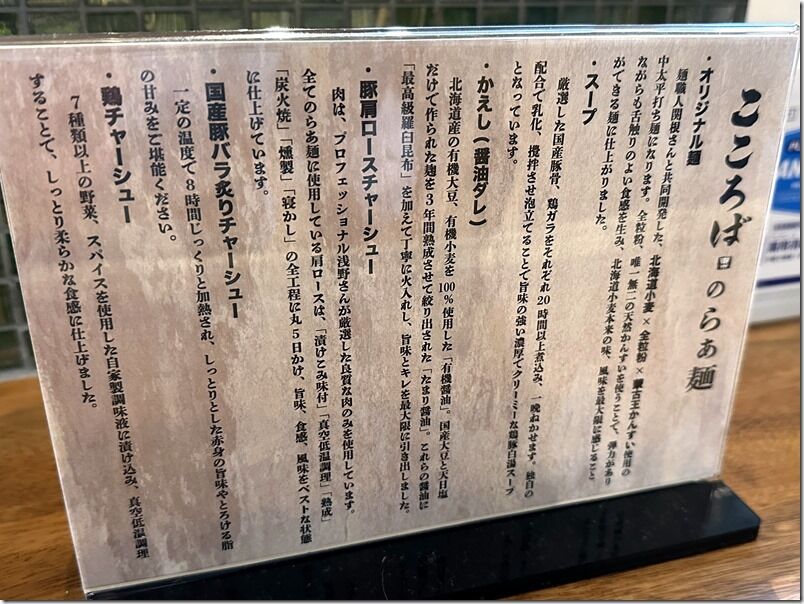 こころばのらぁ麺
・オリジナル麺
麺職人関根さんと共同開発した、北海道小麦×全粒粉×蒙古王かんすい使用の
中太平打ち麺になります。全粒粉、唯一無二の天然かんすいを使うことで、弾力があり
ながらも舌触りのよい食感を生み、北海道小麦本来の味、風味を最大限に感じること
ができる麺に仕上がりました。
・スープ
厳選した国産豚骨、鶏ガラをそれぞれ20時間以上煮込み、一晩ねかせます。独自の
配合で乳化、撹拌させ泡立てることで旨味の強い濃厚でクリーミーな鶏豚白湯スープ
となっています。
・かえし(醤油ダレ)
北海道産の有機大豆、有機小麦を100%使用した「有機醤油」。国産大豆と天日塩
だけで作られた麹を3年間熟成させて絞り出された「たまり醤油」。これらの醤油に
「最高級羅臼昆布」を加えて丁寧に火入れし、旨味とキレを最大限に引き出しました。
・豚肩ロースチャーシュー
肉は、プロフェッショナル浅野さんが厳選した良質な肉のみを使用しています。
全てのらあ麺に使用している肩ロースは、「漬けこみ味付」「真空低温調理」「熟成」
「炭火焼」「燻製」「寝かし」の全工程に丸5日かけ、旨味、食感、風味をベストな状態
に仕上げています。
・国産豚バラ炙りチャーシュー
一定の温度で8時間じっくりと加熱され、しっとりとした赤身の旨味やとろける脂
の甘みをご堪能ください。
・鶏チャーシュー
7種類以上の野菜、スパイスを使用した自家製調味液に漬け込み、真空低温調理
することで、しっとり柔らかな食感に仕上げました。